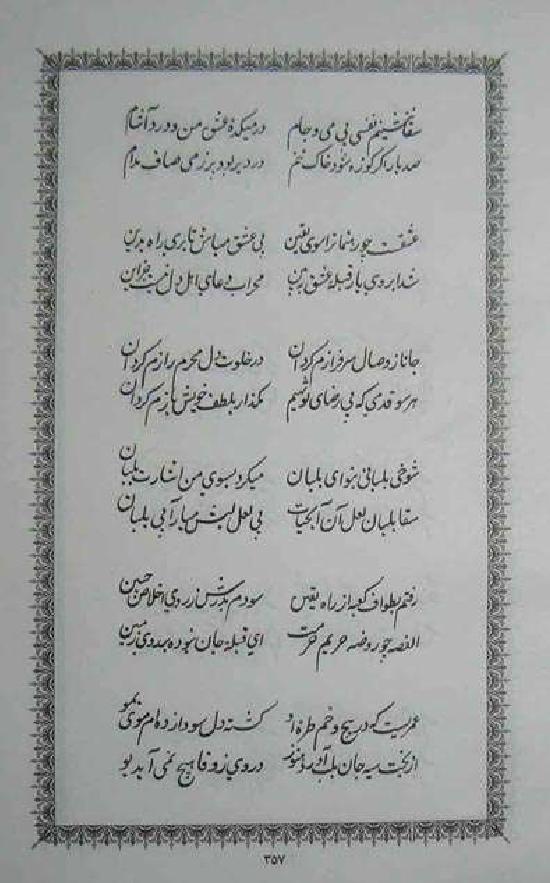 ننشینم نفسی بی می و جام در میکدهٔ عشق من و درد آشام
صد بار اگر کوزه شود خاک تنم در دیر بود پر ز می صاف مدام
عشقت چو رهنما ترا سوی یقین بی عشق مباش تا بری راه بدین
شد ابروی یار قبلهٔ عشق محراب دعای اهل دل نیست جز این
جانا ز وصال سرفرازم گردان در خلوت دل محرم رازم گردان
هر سو قدمی که بی رضای تو نهیم مگذار بلطف خویش بازم گردان
شوخی بلبانی بنوای بلبان میکرد بسوی من اشارت بلبان
لعل آن آبحیات بی لعل لبش بیار آبی بلبان
رفتم بطواف کعبه از راه یقین سودم بدرش ز روی اخلاص جبین
القصه چو روضه حریم حرمت ای قبله جان نبوده بر روی زمین
عمریست که در پیچ و خم طره او گشته دل سودازده‌ام موی بمو
از بخت سیه جان بلب آمد در وی ز وفا هیچ نمی آید بو
۳۵۷